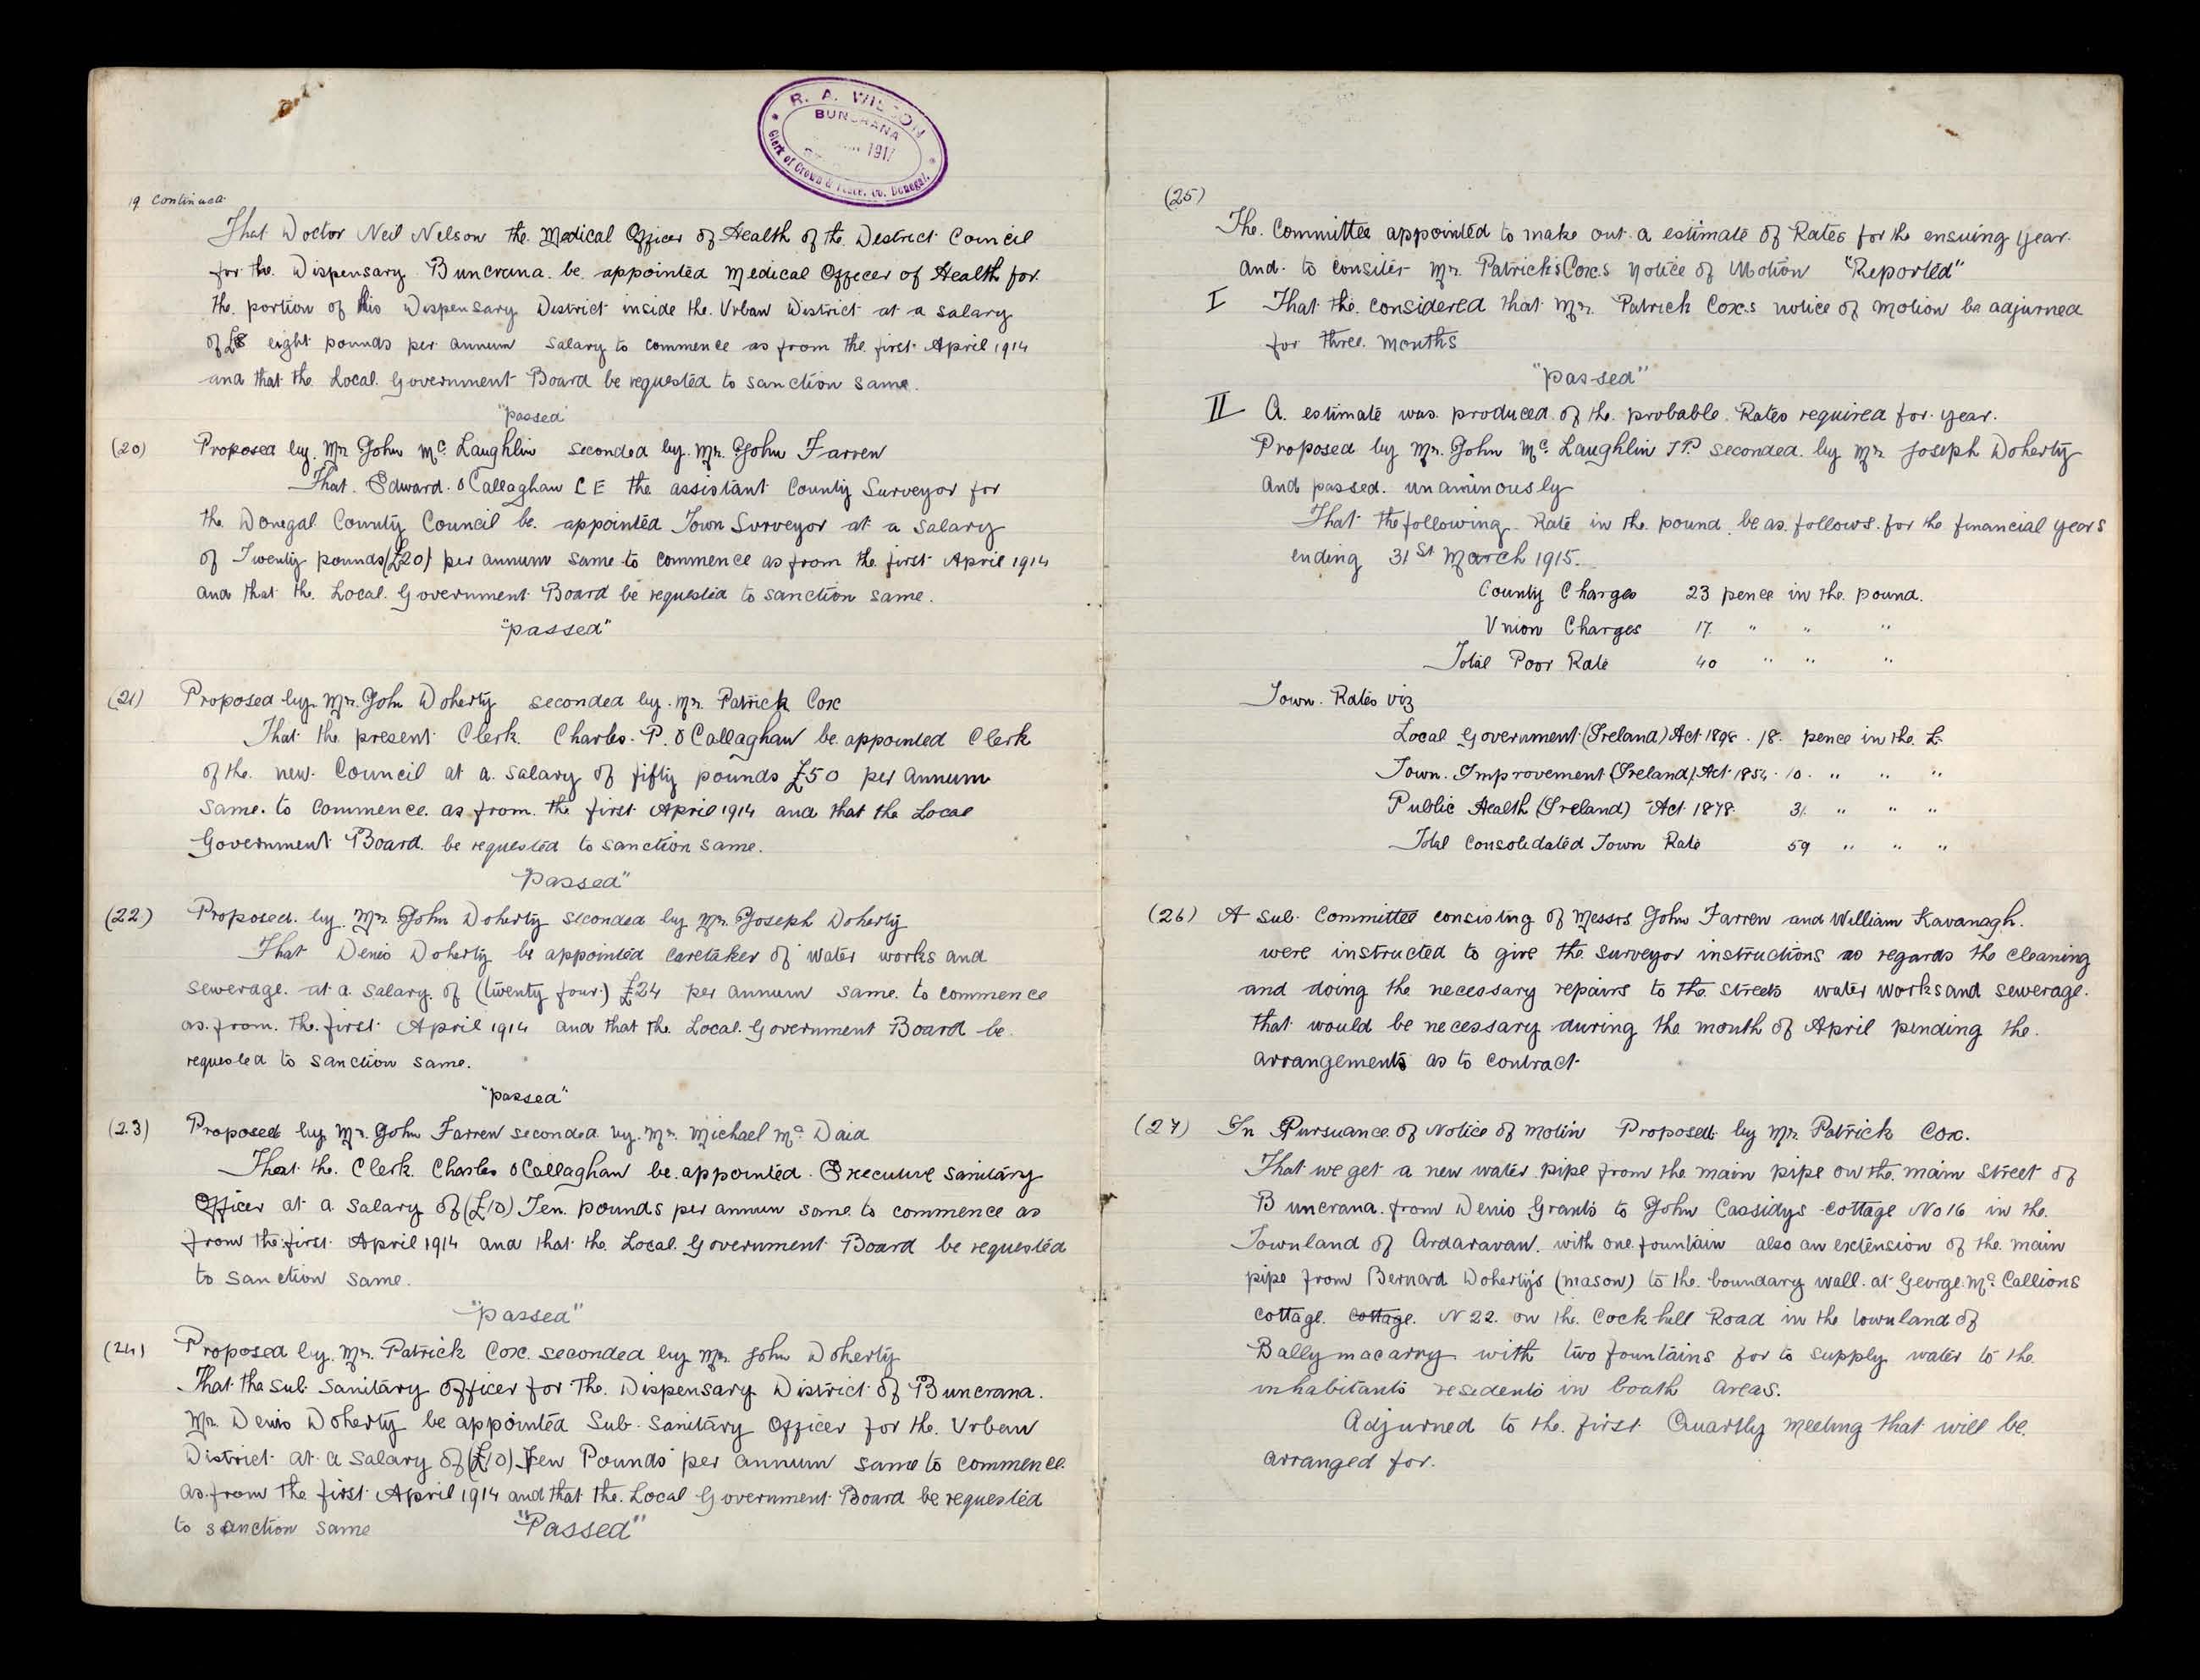 R. A. WILSON
BUNCRANA
1917
Clerk of Crown & Peace, Co. Donegal.
19 continued
That Doctor Neil Nelson the Medical Officer of Health of the District Council
for the Dispensary Buncrana be appointed Medical Officer of Health for
the portion of his Dispensary District inside the Urban District at a salary
of £8 eight pounds per annum salary to commence as from the first April 1914
and that the Local Government Board be requested to sanction same.
"passed"
(20) Proposed by Mr John Mc Laughlin seconded by Mr. John Farren
That Edward O Callaghan C E the assistant County Surveyor for
the Donegal County Council be appointed Town Surveyor at a salary
of Twenty pounds (£20) per annum same to commence as from the first April 1914
and that the Local Government Board be requested to sanction same.
"passed"
(21) Proposed by Mr. John Doherty seconded by Mr. Patrick Cox
That the present Clerk Charles P. O Callaghan be appointed Clerk
of the new Council at a salary of fifty pounds £50 per annum
same to commence as from the first April 1914 and that the Local
Government Board be requested to sanction same.
"Passed"
(22) Proposed by Mr. John Doherty seconded by Mr. Joseph Doherty
That Denis Doherty be appointed caretaker of water works and
sewerage at a salary of (twenty four) £24 per annum same to commence
as from the first April 1914 and that the Local Government Board be
requested to sanction same.
"passed"
(23) Proposed by Mr. John Farren seconded by Mr. Michael Mc Daid
That the Clerk Charles O Callaghan be appointed Executive Sanitary
Officer at a salary of (£10) Ten pounds per annum same to commence as
from the first April 1914 and that the Local Government Board be requested
to sanction same.
"passed"
(24) Proposed by Mr. Patrick Cox seconded by Mr. John Doherty
That the Sub Sanitary Officer for the Dispensary District of Buncrana
Mr. Denis Doherty be appointed Sub Sanitary Officer for the Urban
District at a salary of (£10) Ten Pounds per annum same to commence
as from the first April 1914 and that the Local Government Board be requested
to sanction same "Passed"
(25)
The Committee appointed to make out a estimate of Rates for the ensuing year
and to consiter Mr. Patrick's Cox.s notice of Motion "Reported"
I That the considered that Mr. Patrick Cox.s notice of motion be adjurned
for three months
"passed"
II A estimate was produced of the probable Rates required for year.
Proposed by Mr. John Mc Laughlin J.P. seconded by Mr. Joseph Doherty
and passed unaminously
That the following Rate in the pound be as follows for the financial years
ending 31st March 1915.
County Charges 23 pence in the pound.
Union Charges 17. " " "
Total Poor Rate 40 " " "
Town Rates viz
Local Government (Ireland) Act 1898 . 18 . pence in the £.
Town Improvement (Ireland) Act 1854 . 10 . " " "
Public Health (Ireland) Act 1878 31 " " "
Total Consolidated Town Rate 59 " " "
(26) A sub Committee consisting of Messrs John Farren and William Kavanagh.
were instructed to give the surveyor instructions as regards the cleaning
and doing the necessary repairs to the streets water works and sewerage
that would be necessary during the month of April pending the
arrangements as to contract
(27) In Pursuance of Notice of motin Proposed by Mr. Patrick Cox.
That we get a new water pipe from the main pipe on the main street of
Buncrana from Denis Grants to John Cassidys Cottage No 16 in the
Townland of Ardaravan with one fountain also an extension of the main
pipe from Bernard Doherty's (mason) to the boundary wall at George Mc Callions
cottage cottage N 22 on the Cockhill Road in the townland of
Ballymacarry with two fountains for to supply water to the
inhabitants residents in boath areas.
Adjurned to the first Quartly meeting that will be
arranged for.